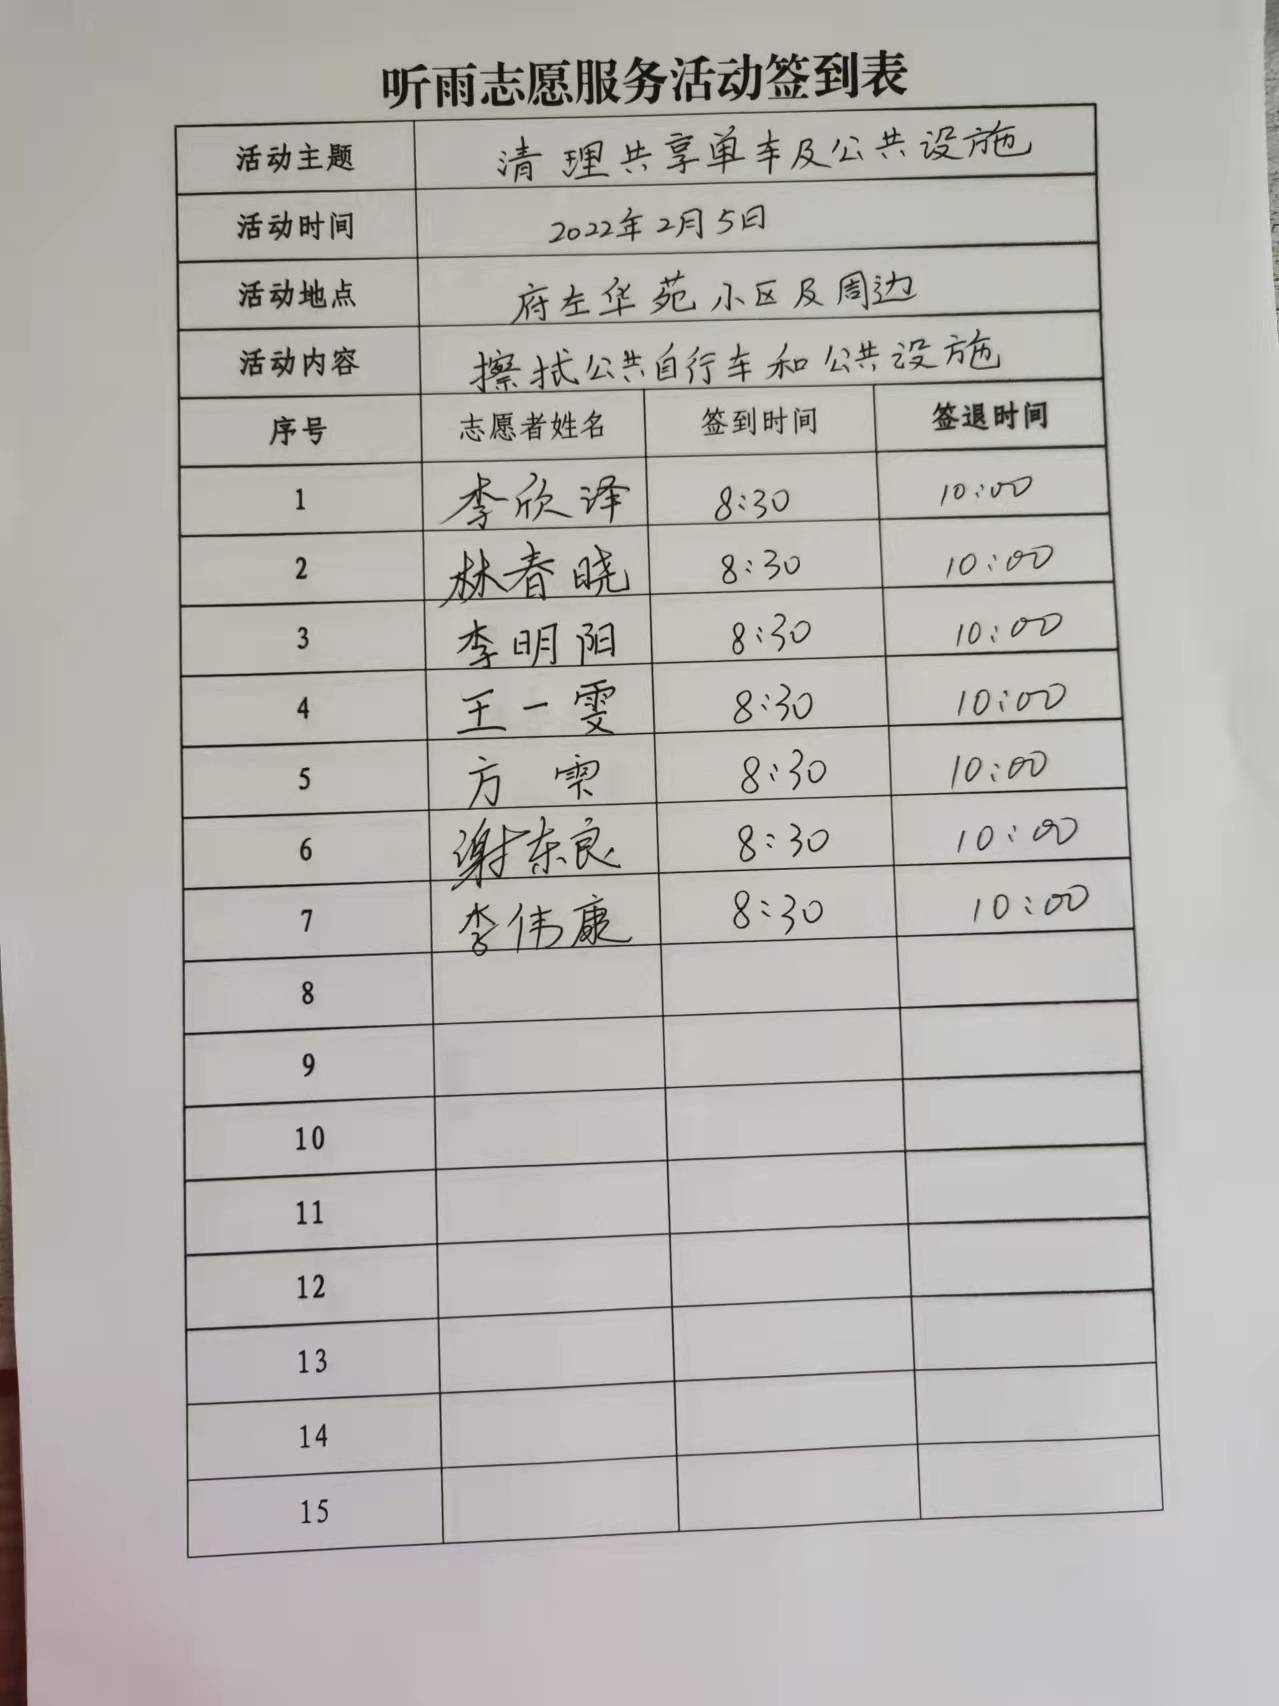 听雨志愿服务活动签到表
活动主题 清理共享单车及公共设施
活动时间 2022年2月5日
活动地点 府左华苑小区及周边
活动内容 擦拭公共自行车和公共设施
序号 志愿者姓名 签到时间 签退时间
1 李欣泽 8:30 10:00
2 林春晓 8:30 10:00
3 李明阳 8:30 10:00
4 王一雯 8:30 10:00
5 方 8:30 10:00
6 谢东良 8:30 10:00
7 李伟康 8:30 10:00
8
9
10
11
12
13
14
15